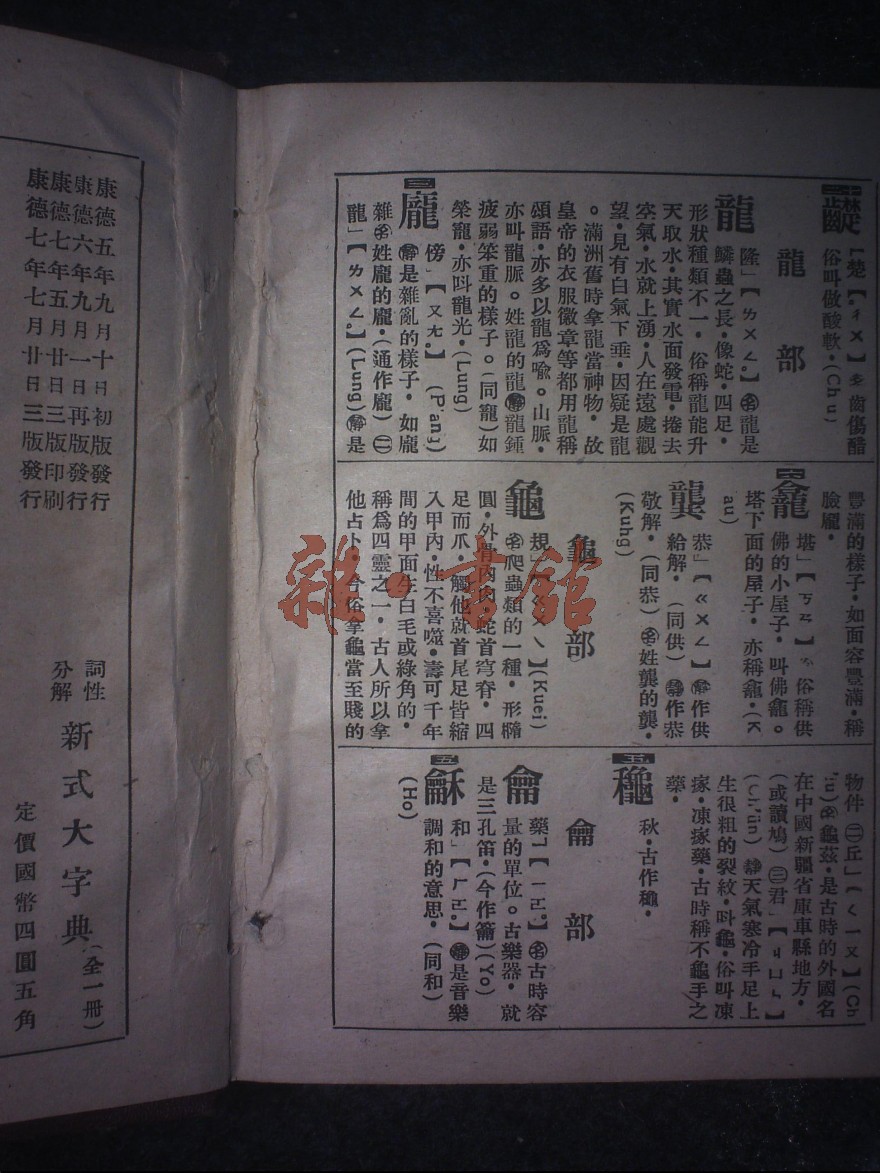 齼
楚【·ㄔㄨ】齒傷醋
俗叫做酸軟·(Chu)
龍部
龍
隆」【ㄌㄨㄥ。】名龍是
鱗蟲之長·像蛇·四足·
形狀種類不一·俗稱龍能升
天取水·其實水面發電·捲去
空氣·水就上湧·人在遠處觀
望·見有白氣下垂·因疑是龍
。滿洲舊時拿龍當神物·故
皇帝的衣服徽章等都用龍稱
頌語·亦多以龍爲喩。山脈·
亦叫龍脈。姓龍的龍靜龍鍾
疲弱笨重的樣子。(同寵)如
榮寵·亦叫龍光·(Lung)
三
龐
傍」【ㄆㄤ。】(P'ang)
靜是雜亂的樣子·如龐
雜名姓龐的龐·(通作龎)㊁
龍」【ㄌㄨㄥ。】(Lung)靜是
豐滿的樣子·如面容豐滿·稱
臉龐·
龕
堪」【ㄎㄢ】名俗稱供
佛的小屋子·叫佛龕。
塔下面的屋子·亦稱龕·(K
au)
龔
恭」【ㄍㄨㄥ】靜作供
給解·(同供)靜作恭
敬解·(同恭)名姓龔的龔·
(Kuhg)
龜部
龜
規」【ㄍㄨㄟ】(Kuei)
名爬蟲類的一種·形橢
圓·外骨內肉·蛇首穹脊·四
足而爪·觸他就首尾足皆縮
入甲內·性不喜噬·壽可千年
間的甲面生白毛或綠角的·
稱爲四靈之一·古人所以拿
他占卜·今俗拿龜當至賤的
物件㊁丘」(ㄑㄧㄡ】(Ch
'iu)名龜茲·是古時的外國名
在中國新疆省庫車縣地方·
(或讀鳩)㊂君」【ㄐㄩㄣ】
(Ch'ün)靜天氣寒冷手足上
生很粗的裂紋·叫龜·俗叫凍
瘃·凍瘃藥·古時稱不龜手之
藥·
五
龝
秋·古作龝·
龠部
龠
藥】【ㄧㄛ】名古時容
量的單位。古樂器·就
是三孔笛·(今作籥)(Yo)
五
龢
和」【ㄏㄛ。】靜是音樂
調和的意思·(同和)
(Ho)
康德五年九月十日初版發行
康德六年九月一日再版發行
康德七年五月廿日三版印刷
康德七年七月廿日三版發行
詞性
分解
新式大字典(全一冊)
定價國幣四圓五角
雜·書館